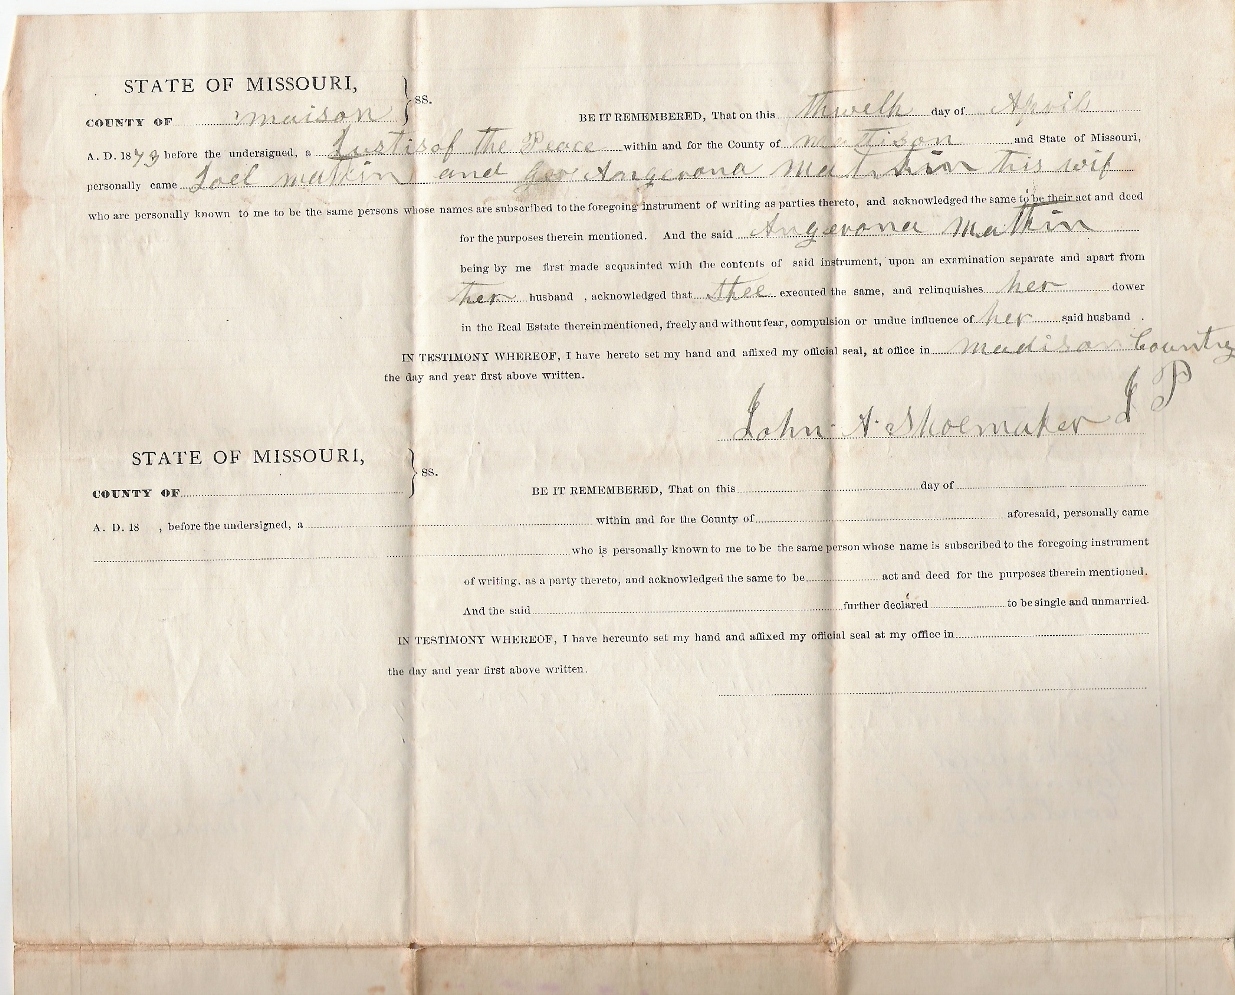 STATE OF MISSOURI,
COUNTY OF maison } ss.
BE IT REMEMBERED, That on this thwelh day of April
A. D. 1879 before the undersigned, a Justis of the Peace within and for the County of mattison and State of Missouri,
personally came Joel matkin and Angerona Matkin this wif
who are personally known to me to be the same persons whose names are subscribed to the foregoing instrument of writing as parties thereto, and acknowledged the same to be their act and deed
for the purposes therein mentioned. And the said Angerona Matkin
being by me first made acquainted with the contents of said instrument, upon an examination separate and apart from
her husband , acknowledged that shee executed the same, and relinquishes her dower
in the Real Estate therein mentioned, freely and without fear, compulsion or undue influence of her said husband .
IN TESTIMONY WHEREOF, I have hereto set my hand and affixed my official seal, at office in madison Country
the day and year first above written.
John A. Shoemaker J P
STATE OF MISSOURI,
COUNTY OF } ss.
BE IT REMEMBERED, That on this day of
A. D. 18 , before the undersigned, a within and for the County of aforesaid, personally came
who is personally known to me to be the same person whose name is subscribed to the foregoing instrument
of writing, as a party thereto, and acknowledged the same to be act and deed for the purposes therein mentioned.
And the said further declared to be single and unmarried.
IN TESTIMONY WHEREOF, I have hereunto set my hand and affixed my official seal at my office in
the day and year first above written.